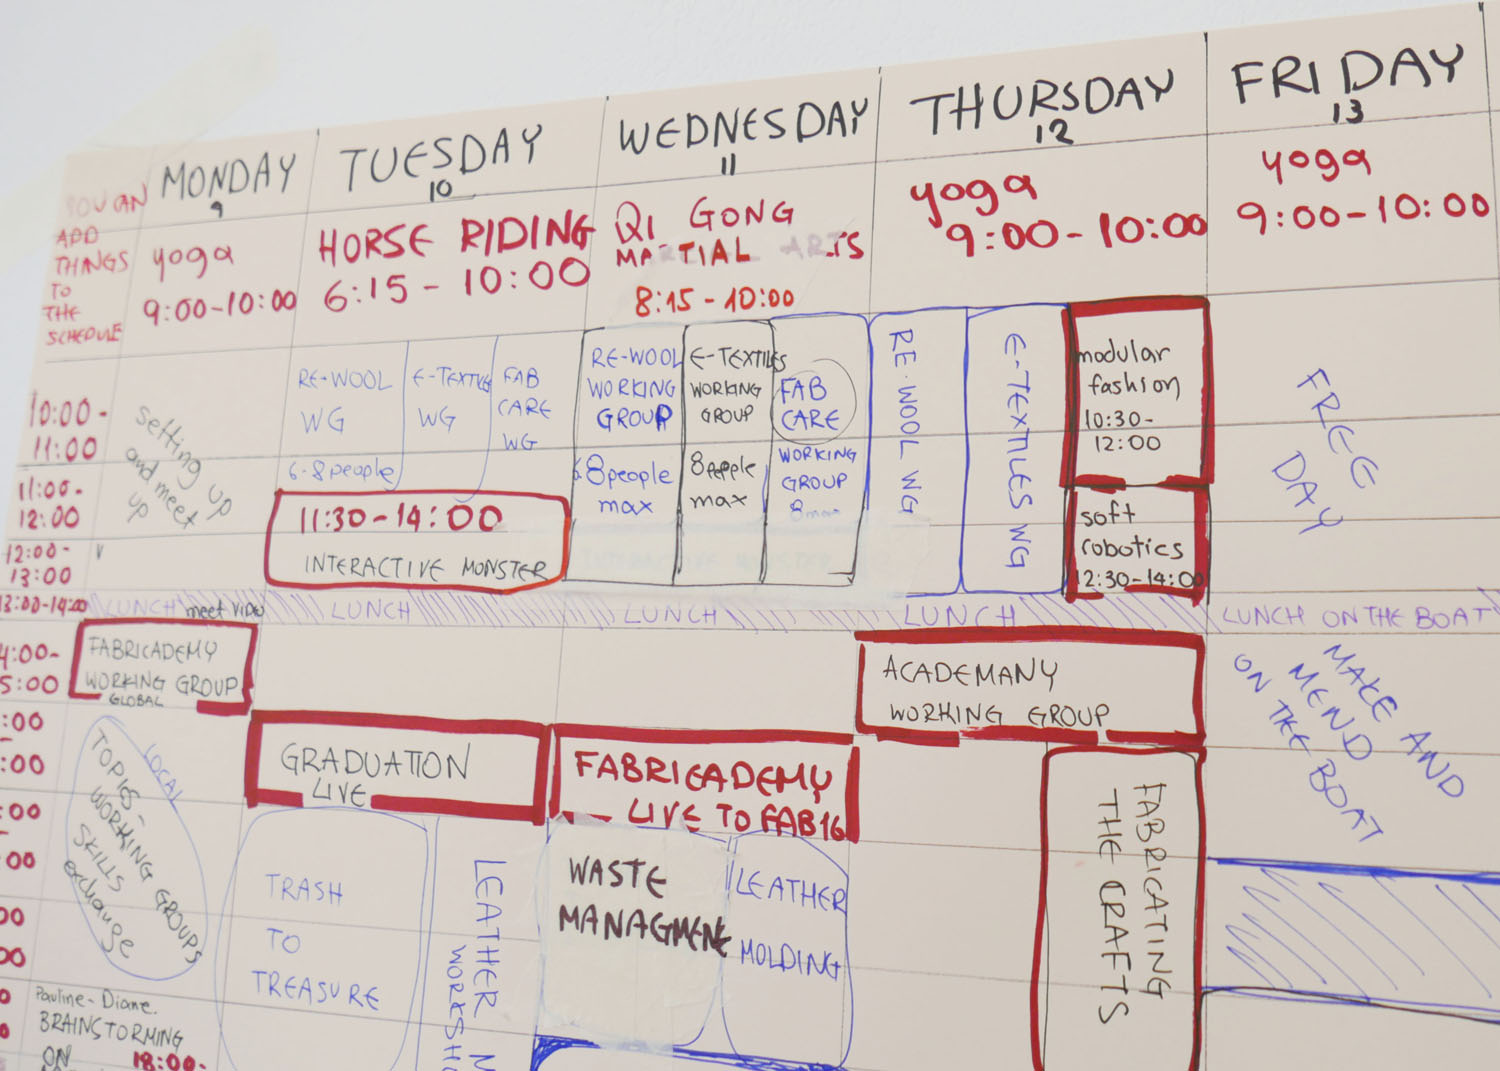 MONDAY
9
TUESDAY
10
WEDNESDAY
11
THURSDAY
12
FRIDAY
13
YOU CAN
ADD
THINGS
TO
THE
SCHEDULE
yoga
9:00-10:00
HORSE RIDING
6:15 - 10:00
QI GONG
MARTIAL ARTS
8:15 - 10:00
yoga
9:00 - 10:00
yoga
9:00 - 10:00
10:00 -
11:00
11:00-
12:00
12:00-
13:00
13:00-14:00
setting up
and meet
up
RE-WOOL
WG
6-8 people
E-TEXTILE
WG
FAB
CARE
WG
11:30 - 14:00
INTERACTIVE MONSTER
RE-WOOL
WORKING
GROUP
8 people
max
E-TEXTILES
WORKING
GROUP
8 people
max
FAB
CARE
WORKING
GROUP
8 max
RE-WOOL WG
E-TEXTILES WG
modular
fashion
10:30-
12:00
soft
robotics
12:30-14:00
FREE
DAY
LUNCH meet
LUNCH
LUNCH
LUNCH
LUNCH ON THE BOAT
4:00-
5:00
:00
:00
:00
:00
00
00
FABRICADEMY
WORKING GROUP
GLOBAL
ACADEMANY
WORKING GROUP
MAKE AND
MEND
ON THE BOAT
GRADUATION
LIVE
FABRICADEMY
LIVE TO FAB16
LOCAL
TOPICS -
WORKING GROUPS
SKILLS
exchange
TRASH
TO
TREASURE
LEATHER M
WORKSH
WASTE
MANAGMENE
LEATHER
MOLDING
FABRICATING
THE CRAFTS
Pauline - Diane.
BRAINSTORMING
ON
18:00-